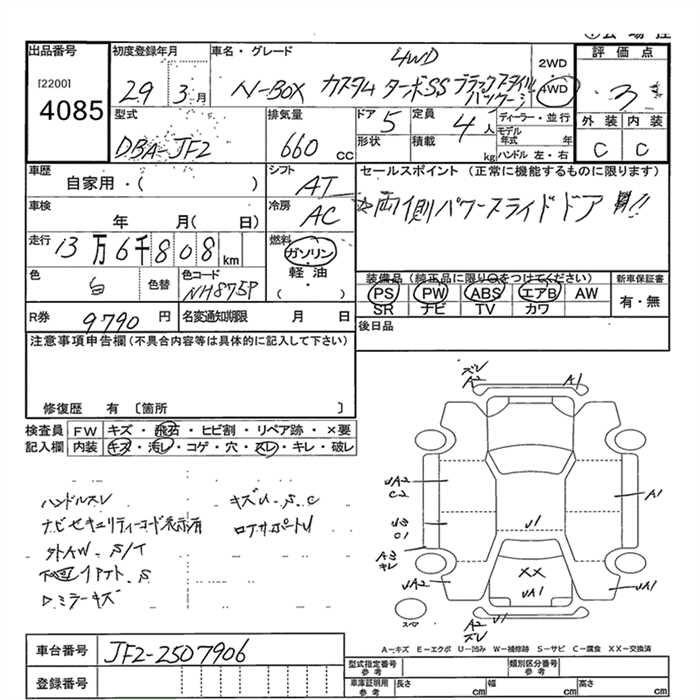 出品番号
[2200]
4085
初度登録年月
29 3月
車名・グレード
4WD
N-BOX カスタム ターボSS ブラックスタイル
パッケージ
2WD
4WD
評価点
3
外装 内装
C C
型式
DBA-JF2
排気量
660 cc
ドア 5
形状
定員 4人
積載 kg
ディーラー・並行
モデル
年式 年
ハンドル 左・右
車歴
自家用・( )
シフト
AT
セールスポイント (正常に機能するものに限ります)
両側パワースライドドア
車検
年 月( 日)
冷房
AC
走行 13万6千808km
燃料
ガソリン
軽油
・
( )
色
白
色替
色コード
NH875P
装備品 (純正品に限り○をつけてください)
PS PW ABS エアB AW
SR ナビ TV カワ
新車保証書
有・無
R券 9790 円
名変通知期限 月 日
後日品
注意事項申告欄(不具合内容等は具体的に記入して下さい)
修復歴 有 〔箇所 〕
検査員 FW キズ・飛石・ヒビ割・リペア跡・×要
記入欄 内装 キズ・汚レ・コゲ・穴・スレ・キレ・破レ
ハンドルスレ
キズU.S.C
ナビセキュリティーコード表示有
ロアサポートU
外AW.S/T
ミラーキズ
ズレ
A2
A1
UA2
C2
A1
U3
C1
U1
A3
キレ
UA2
XX
UA1
UA1
スペア
A2
ズレ
U1
A-キズ E-エクボ U-凹み W-補修跡 S-サビ C-腐食 XX-交換済
車台番号 JF2-2507906
登録番号
型式指定番号
参考
類別区分番号
参考
車庫証明用
参考
長さ cm
幅 cm
高さ cm